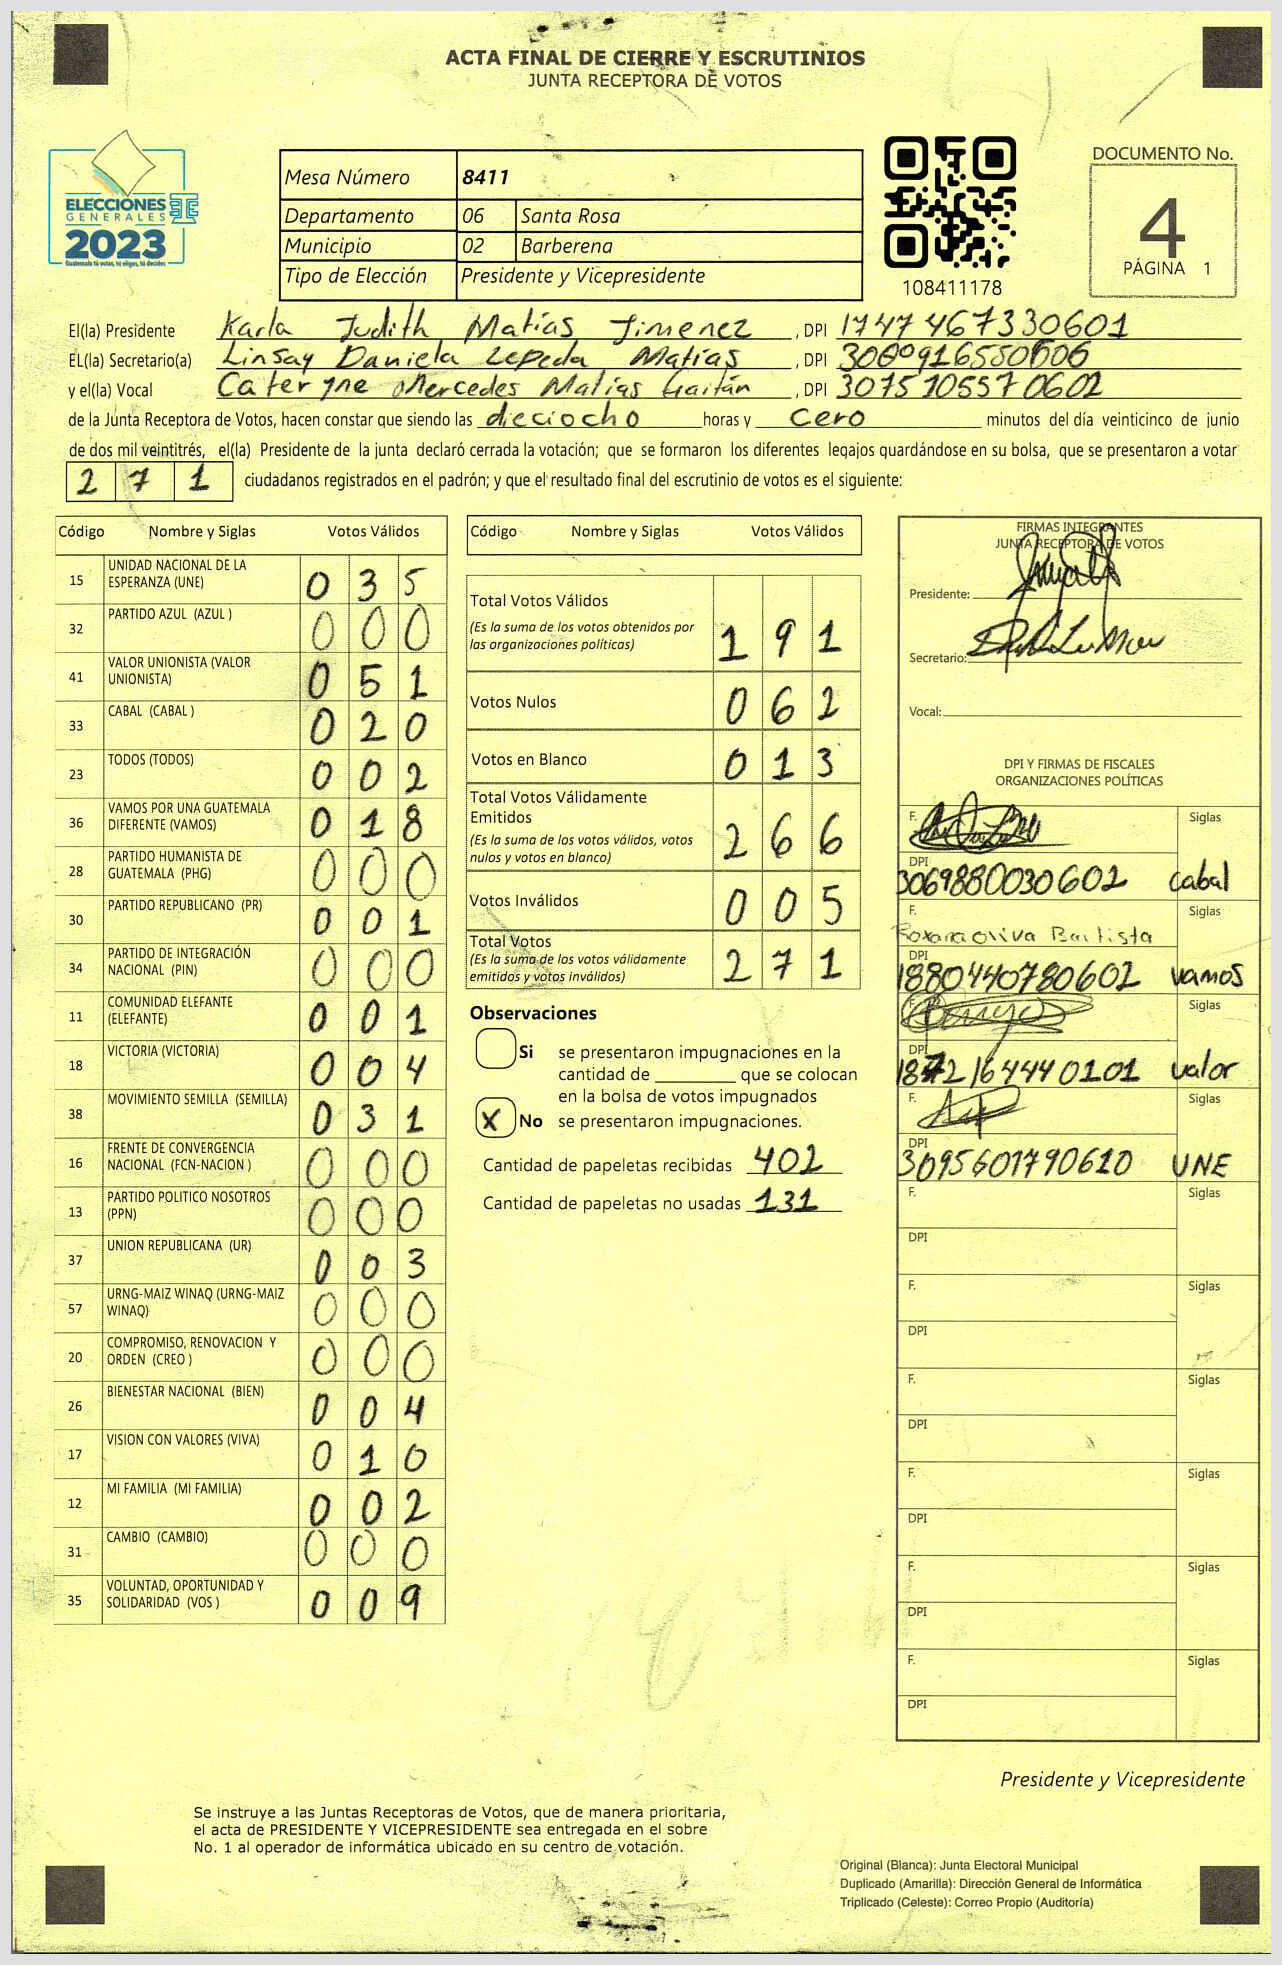 ACTA FINAL DE CIERRE Y ESCRUTINIOS
JUNTA RECEPTORA DE VOTOS
ELECCIONES
GENERALES
2023
Guatemala tú votas, tú eliges, tú decides
Mesa Número 8411
Departamento 06 Santa Rosa
Municipio 02 Barberena
Tipo de Elección Presidente y Vicepresidente
108411178
DOCUMENTO No.
4
PÁGINA 1
El(la) Presidente Karla Judith Matías Jimenez , DPI 1747467330601
EL(la) Secretario(a) Linsay Daniela Zepeda Matías , DPI
y el(la) Vocal Cateryne Mercedes Matías Gaitán , DPI 3075105570602
de la Junta Receptora de Votos, hacen constar que siendo las dieciocho horas y cero minutos del día veinticinco de junio
de dos mil veintitrés, el(la) Presidente de la junta declaró cerrada la votación; que se formaron los diferentes legajos quardándose en su bolsa, que se presentaron a votar
2 7 1 ciudadanos registrados en el padrón; y que el resultado final del escrutinio de votos es el siguiente:
Código Nombre y Siglas Votos Válidos
15 UNIDAD NACIONAL DE LA ESPERANZA (UNE) 0 3 5
32 PARTIDO AZUL (AZUL ) 0 0 0
41 VALOR UNIONISTA (VALOR UNIONISTA) 0 5 1
33 CABAL (CABAL ) 0 2 0
23 TODOS (TODOS) 0 0 2
36 VAMOS POR UNA GUATEMALA DIFERENTE (VAMOS) 0 1 8
28 PARTIDO HUMANISTA DE GUATEMALA (PHG) 0 0 0
30 PARTIDO REPUBLICANO (PR) 0 0 1
34 PARTIDO DE INTEGRACIÓN NACIONAL (PIN) 0 0 0
11 COMUNIDAD ELEFANTE (ELEFANTE) 0 0 1
18 VICTORIA (VICTORIA) 0 0 4
38 MOVIMIENTO SEMILLA (SEMILLA) 0 3 1
16 FRENTE DE CONVERGENCIA NACIONAL (FCN-NACION ) 0 0 0
13 PARTIDO POLITICO NOSOTROS (PPN) 0 0 0
37 UNION REPUBLICANA (UR) 0 0 3
57 URNG-MAIZ WINAQ (URNG-MAIZ WINAQ) 0 0 0
20 COMPROMISO, RENOVACION Y ORDEN (CREO ) 0 0 0
26 BIENESTAR NACIONAL (BIEN) 0 0 4
17 VISION CON VALORES (VIVA) 0 1 0
12 MI FAMILIA (MI FAMILIA) 0 0 2
31 CAMBIO (CAMBIO) 0 0 0
35 VOLUNTAD, OPORTUNIDAD Y SOLIDARIDAD (VOS ) 0 0 9
Código Nombre y Siglas Votos Válidos
Total Votos Válidos 1 9 1
(Es la suma de los votos obtenidos por
las organizaciones políticas)
Votos Nulos 0 6 2
Votos en Blanco 0 1 3
Total Votos Válidamente
Emitidos 2 6 6
(Es la suma de los votos válidos, votos
nulos y votos en blanco)
Votos Inválidos 0 0 5
Total Votos 2 7 1
(Es la suma de los votos válidamente
emitidos y votos inválidos)
Observaciones
Si se presentaron impugnaciones en la
cantidad de ________ que se colocan
en la bolsa de votos impugnados
X No se presentaron impugnaciones.
Cantidad de papeletas recibidas 402
Cantidad de papeletas no usadas 131
FIRMAS INTEGRANTES
JUNTA RECEPTORA DE VOTOS
Presidente:
Secretario:
Vocal:
DPI Y FIRMAS DE FISCALES
ORGANIZACIONES POLÍTICAS
F. Siglas
DPI
3069880030602 cabal
F. Siglas
Roxana oliva Bautista
DPI
1880440780602 vamos
F. Siglas
DPI
valor
F. Siglas
DPI
3095601790610 UNE
F. Siglas
DPI
F. Siglas
DPI
F. Siglas
DPI
F. Siglas
DPI
F. Siglas
DPI
F. Siglas
DPI
Presidente y Vicepresidente
Se instruye a las Juntas Receptoras de Votos, que de manera prioritaria,
el acta de PRESIDENTE Y VICEPRESIDENTE sea entregada en el sobre
No. 1 al operador de informática ubicado en su centro de votación.
Original (Blanca): Junta Electoral Municipal
Duplicado (Amarilla): Dirección General de Informática
Triplicado (Celeste): Correo Propio (Auditoría)